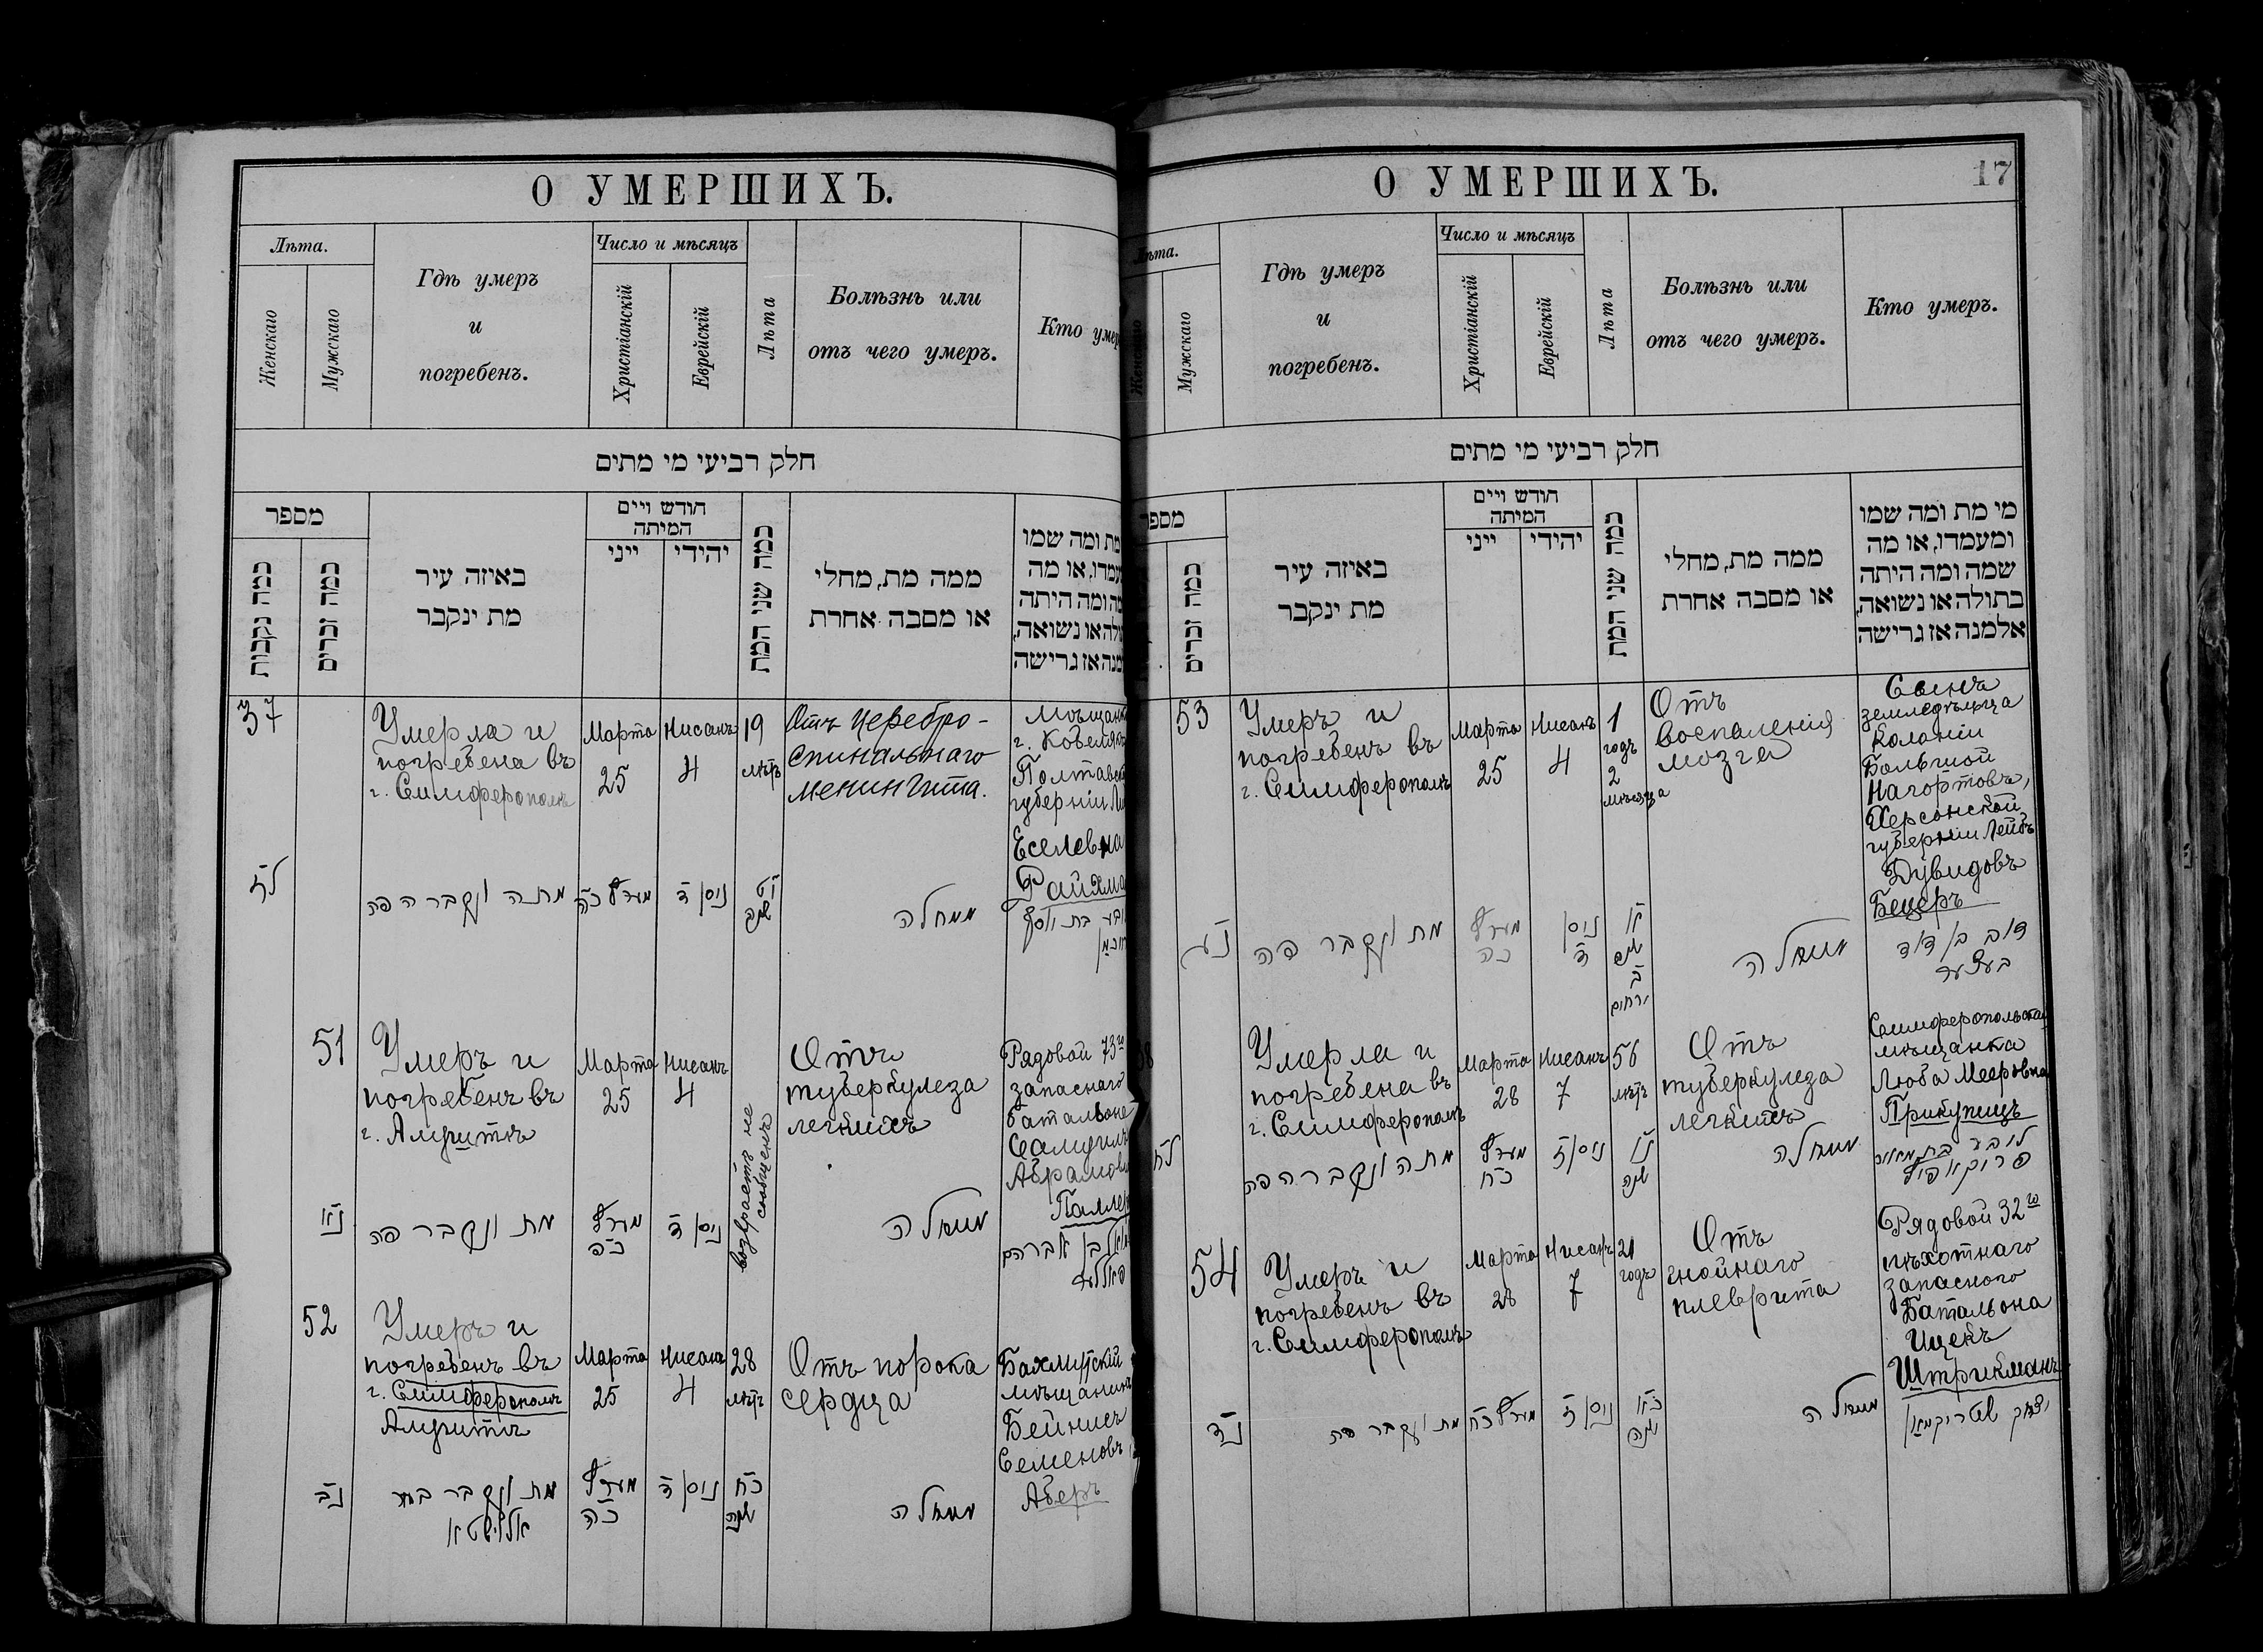 О УМЕРШИХЪ.
Лѣта.
Женскаго
Мужскаго
Гдѣ умеръ
и
погребенъ.
Число и мѣсяцъ
Христіанскій
Еврейскій
Лѣта
Болѣзнь или
отъ чего умеръ.
Кто умер
חלק רביעי מי מתים
מספר
כמה נקבות
כמה זכרים
באיזה עיר
מת ינקבר
חודש ויים
המיתה
ייני
יהודי
כמה שני המת
ממה מת, מחלי
או מסבה אחרת
מת ומה שמו
עמדו, או מה
מה ומה היתה
ולה או נשואה,
מנה אז גרישה
37
Умерла и
погребена въ
г. Симферополѣ
Марта
25
Нисанъ
4
19
лѣтъ
Отъ церебро-
спинальнаго
менингита.
Мѣщанк
г. Кобеляк
Полтавск
губерніи
Еселевна
Райхма
לז
מתה ונקברה פה
מערץ כה
ניסן ד
יט
שנה
ממחלה
בת יוסף
51
Умеръ и
погребенъ въ
г. Алуштѣ
Марта
25
Нисанъ
4
возрастъ не
сообщенъ
Отъ
туберкулеза
легкихъ
Рядовой 73го
запаснаго
баталіона
Самуилъ
Абрамов
Паллер
נא
מת ונקבר פה
מערץ
כה
ניסן ד
ממחלה
בן אברהם
52
Умеръ и
погребенъ въ
г. Симферополѣ
Алуштѣ
Марта
25
Нисана
4
28
лѣтъ
Отъ порока
сердца
Бахмутскій
мѣщанинъ
Бейнисъ
Семеновъ
Аберъ
נב
מת ונקבר בעיר
מערץ
כה
ניסן ד
כח
שנה
ממחלה
О УМЕРШИХЪ.
17
ѣта.
Женскаго
Мужскаго
Гдѣ умеръ
и
погребенъ.
Число и мѣсяцъ
Христіанскій
Еврейскій
Лѣта
Болѣзнь или
отъ чего умеръ.
Кто умеръ.
חלק רביעי מי מתים
מספר
כמה זכרים
באיזה עיר
מת ינקבר
חודש ויים
המיתה
ייני
יהודי
כמה שני המת
ממה מת, מחלי
או מסבה אחרת
מי מת ומה שמו
ומעמדו, או מה
שמה ומה היתה
בתולה או נשואה,
אלמנה אז גרישה
53
Умеръ и
погребенъ въ
г. Симферополѣ
Марта
25
Нисанъ
4
1
годъ
2
мѣсяца
Отъ
воспаленія
мозга
Сынъ
земледѣльца
Колоніи
Большой
Нагортовъ,
Херсонской
губерніи Лейбъ
Дувидовъ
Бецеръ
נג
מת ונקבר פה
מערץ
כה
ניסן
ד
א
שנה
ב
ירחים
ממחלה
בן דוד
בעצער
38
Умерла и
погребена въ
г. Симферополѣ
Марта
28
Нисанъ
7
56
лѣтъ
Отъ
туберкулеза
легкихъ
Симферопольская
мѣщанка
Люба Мееровна
Прикупицъ
לח
מתה ונקברה פה
מערץ
כח
ניסן ז
נו
שנה
ממחלה
ליבע בת מאיר
54
Умеръ и
погребенъ въ
г. Симферополѣ
Марта
28
Нисанъ
7
21
годъ
Отъ
гнойнаго
плеврита
Рядовой 32го
пѣхотнаго
запасного
Баталіона
Ицекъ
Штрикманъ
נד
מת ונקבר פה
מערץ כח
ניסן ז
כא
שנה
ממחלה
יצחק שטריקמאן